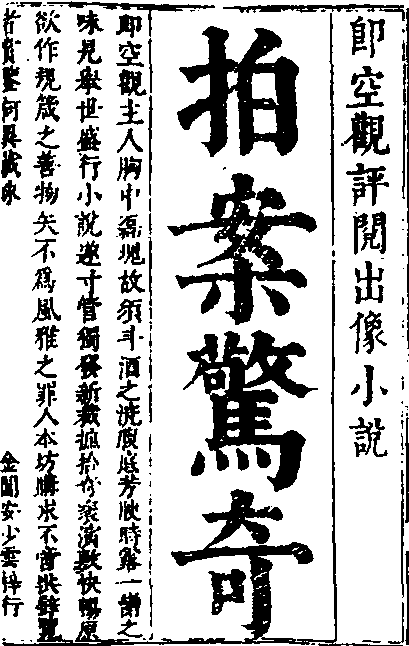 即空觀評閱出像小說
拍案驚奇
即空觀主人胸中磊塊故須斗酒之澆腹底芳腴時露一臠之
味見舉世盛行小說遂寸管獨發新裁摭拾奇袞演敷快暢原
欲作規箴之善物矢不爲風雅之罪人本坊購求不啻拱璧覽
者賞鑒何異藏珠
金閶安少雲梓行